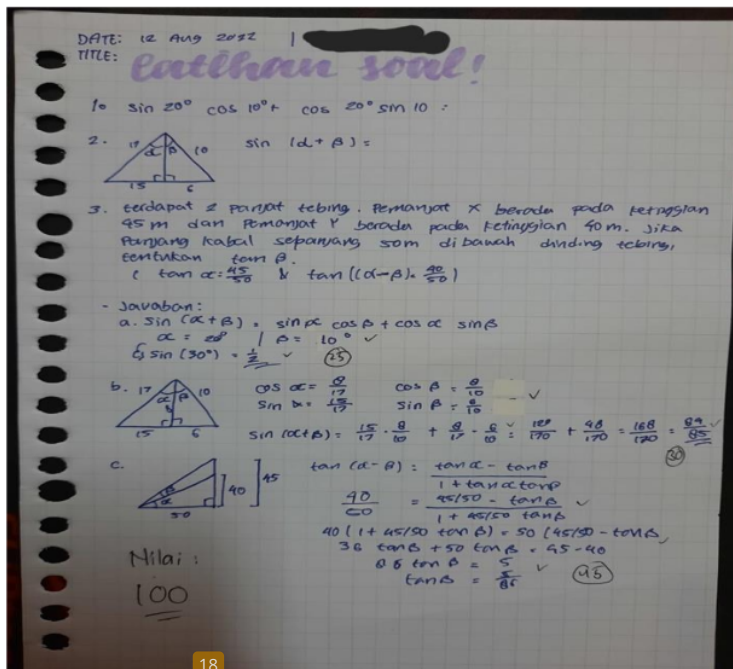 DATE: 12 Aug 2022
TITLE: Latihan soal!
1. sin 20° cos 10° + cos 20° sin 10 :
2. 17 α β 10 sin (α + β) =
15 6
3. terdapat 2 panjat tebing. Pemanjat X berada pada ketinggian
45 m dan Pemanjat Y berada pada ketinggian 40 m. Jika
Panjang kabal sepanjang 50m dibawah dinding tebing,
tentukan tan β.
( tan α = 45/50 & tan ((α-β) = 40/50 )
- Javaban:
a. sin (α + β) = sin α cos β + cos α sin β
α = 20° | β = 10° ✓
↳ sin (30°) = 1/2 ✓ (25)
b. 17 α β 10 cos α = 8/17 cos β = 8/10 ✓
8 sin α = 15/17 sin β = 6/10
15 6 sin (α+β) = 15/17 · 8/10 + 8/17 · 6/10 = 120/170 + 48/170 = 168/170 = 84/85 ✓
(30)
c. β α 40 45 50 tan (α - β) = tan α - tan β / 1 + tan α tan β
40/50 = 45/50 - tan β / 1 + 45/50 tan β ✓
40 (1 + 45/50 tan β) = 50 (45/50 - tan β
36 tan β + 50 tan β = 45 - 40
86 tan β = 5 ✓
tan β = 5/86 (45)
Nilai :
100
18